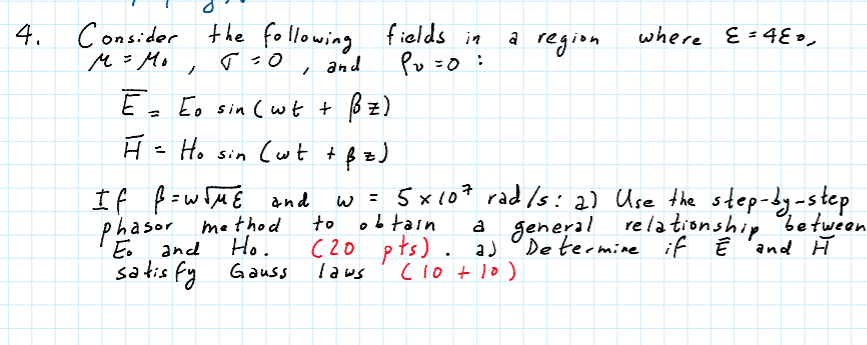 4. Consider the following fields in a region where ε = 4ε₀,
μ = μ₀, σ = 0, and ρᵥ = 0 :
E̅ = E₀ sin (ωt + βz)
H̅ = H₀ sin (ωt + βz)
If β = ω√με and ω = 5 × 10⁷ rad/s: a) Use the step-by-step
phasor method to obtain a general relationship between
E₀ and H₀. (20 pts). a) Determine if E̅ and H̅
satisfy Gauss laws (10 + 10)